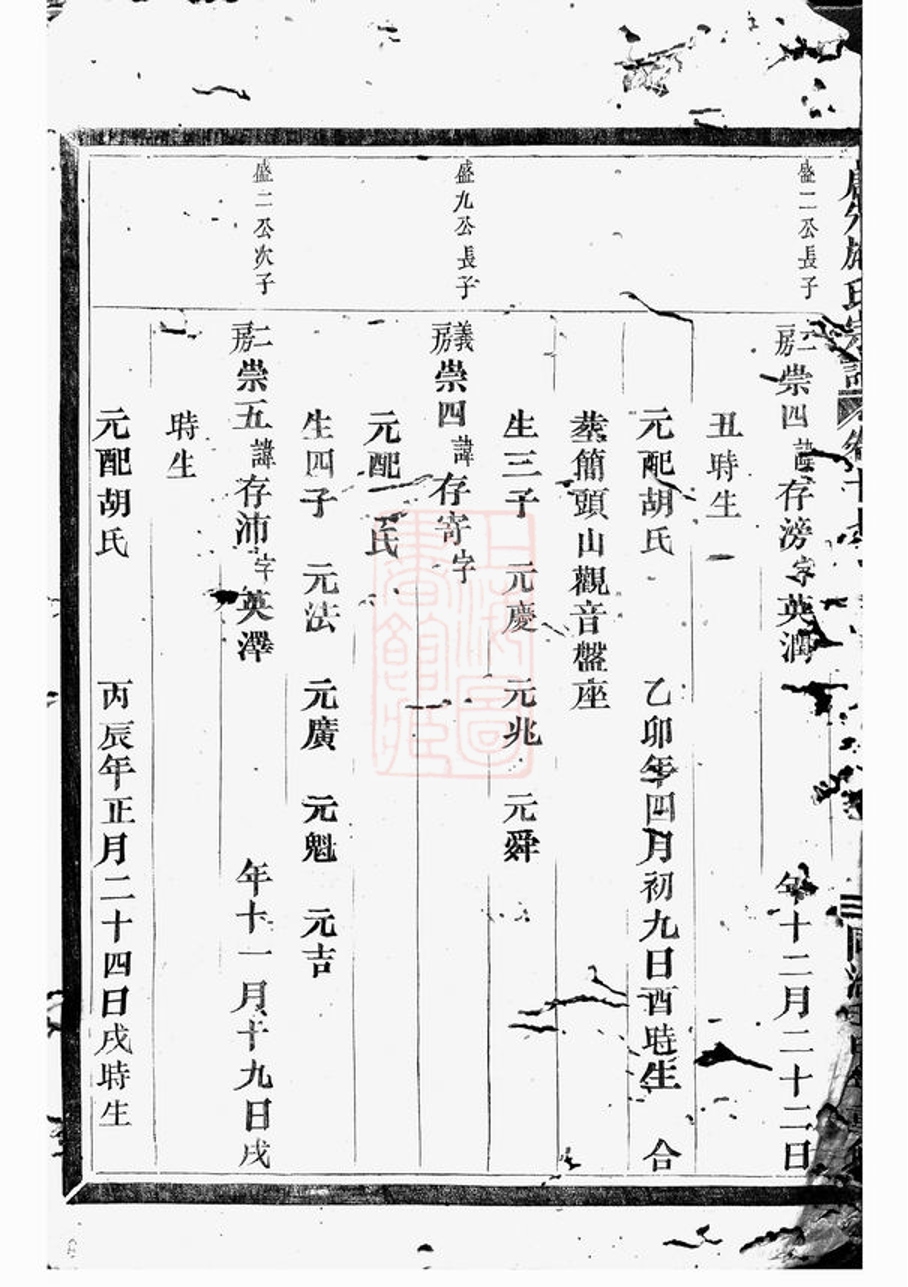 盛二公長子
二房崇四諱存滂字英潤 年十二月二十二日
丑時生
元配胡氏 乙卯年四月初九日酉時生 合
塟簡頭山觀音盤座
生三子 元慶 元兆 元舜
盛九公長子
義房崇四諱存寄字
元配 氏
生四子 元法 元廣 元魁 元吉
盛二公次子
二房崇五諱存沛字英澤 年十一月十九日戌
時生
元配胡氏 丙辰年正月二十四日戌時生
上海圖書館藏